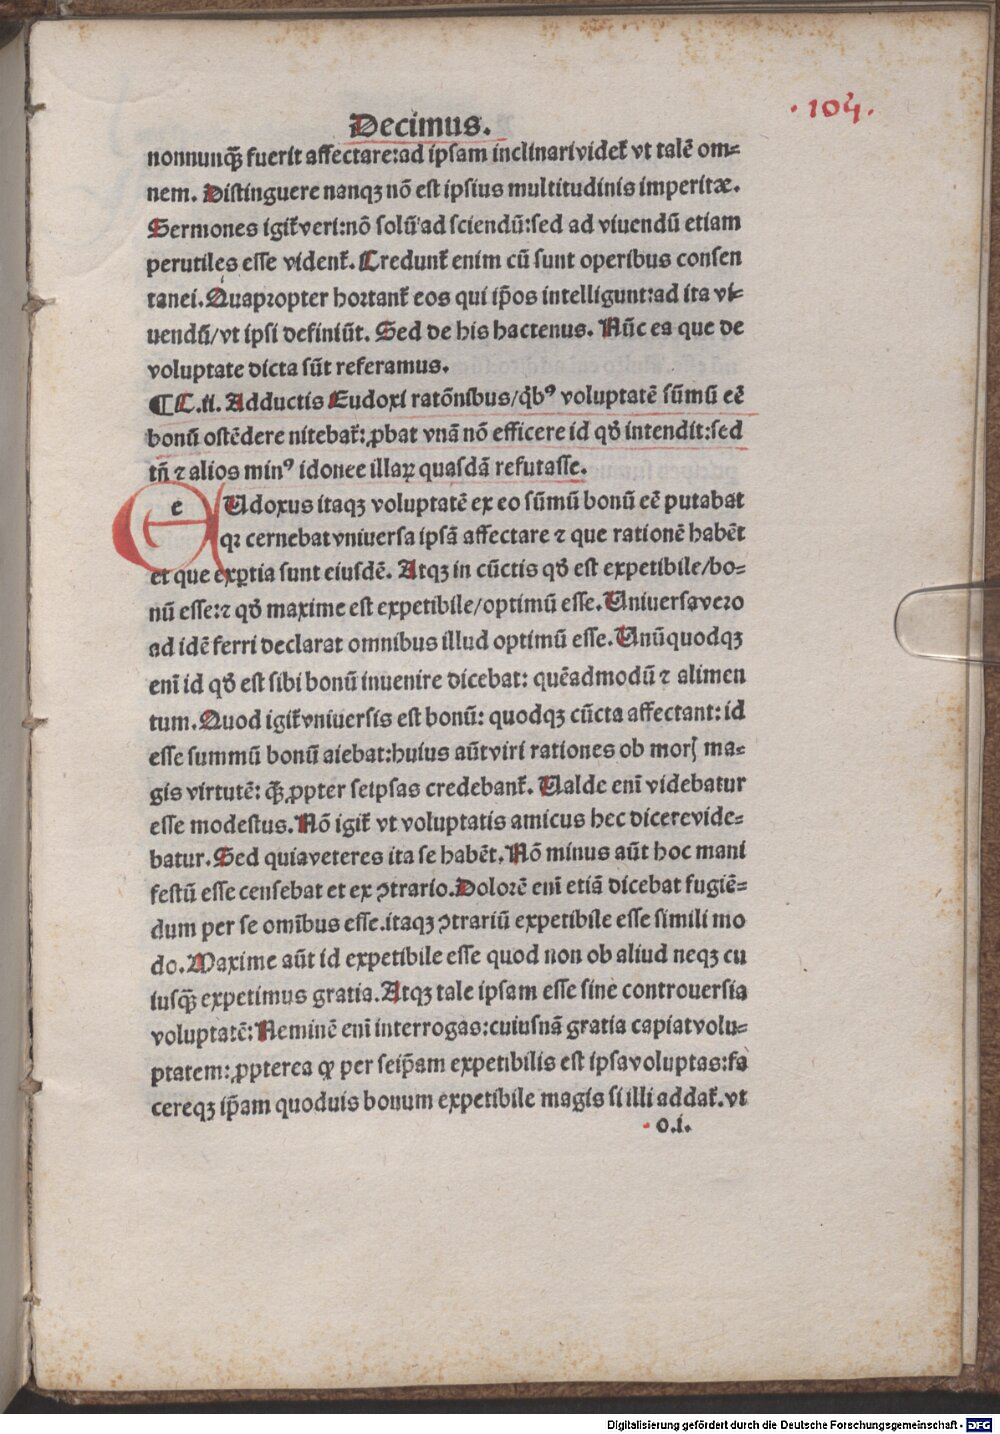 · 104 ·
Decimus.
nonnunqꝫ̃ fuerit affectare:ad ipsam inclinari videt̃ vt talē om=
nem. Distinguere nanqꝫ nō est ipsius multitudinis imperitæ.
Sermones igit̃ veri:nō solū ad sciendū:sed ad viuendū etiam
perutiles esse vident̃. Credunt̃ enim cū sunt operibus consen
tanei. Quapropter hortant̃ eos qui ip̄os intelligunt:ad ita vi=
uendū/vt ipsi definiūt. Sed de his hactenus. Nūc ea que de
voluptate dicta sūt referamus.
¶ C.ii. Adductis Eudoxi ratōnibus/qͥbꝰ voluptatē sūmū eē
bonū ostēdere nitebat̃: ꝓbat vnā nō efficere id qđ intendit:sed
tñ ⁊ alios minꝰ idonee illaꝝ quasdā refutasse.
e UDoxus itaqꝫ voluptatē ex eo sūmū bonū eē putabat
qꝛ cernebat vniuersa ipsā affectare ⁊ que rationē habēt
et que exꝑtia sunt eiusdē. Atqꝫ in cūctis qđ est expetibile/bo=
nū esse:⁊ qđ maxime est expetibile/optimū esse. Uniuersa vero
ad idē ferri declarat omnibus illud optimū esse. Unūquodqꝫ
eni̅ id qđ est sibi bonū inuenire dicebat: quēadmodū ⁊ alimen
tum. Quod igit̃ vniuersis est bonū: quodqꝫ cūcta affectant: id
esse summū bonū aiebat:huius aūt viri rationes ob morꝭ ma=
gis virtutē: qꝫ̃ ꝓpter seipsas credebant̃. Ualde eni̅ videbatur
esse modestus. Nō igit̃ vt voluptatis amicus hec dicere vide=
batur. Sed quia veteres ita se habēt. Nō minus aūt hoc mani
festū esse censebat et ex ꝯtrario. Dolorē eni̅ etiā dicebat fugiē=
dum per se omi̅bus esse.itaqꝫ ꝯtrariū expetibile esse simili mo
do. Maxime aūt id expetibile esse quod non ob aliud neqꝫ cu
iusqꝫ̃ expetimus gratia. Atqꝫ tale ipsam esse sine controuersia
voluptatē: Neminē eni̅ interrogas:cuiusnā gratia capiat volu=
ptatem: ꝓpterea ꝙ per seip̄am expetibilis est ipsa voluptas:fa
cereqꝫ ip̄am quoduis bonum expetibile magis si illi addat̃. vt
o.i.
Digitalisierung gefördert durch die Deutsche Forschungsgemeinschaft - DFG